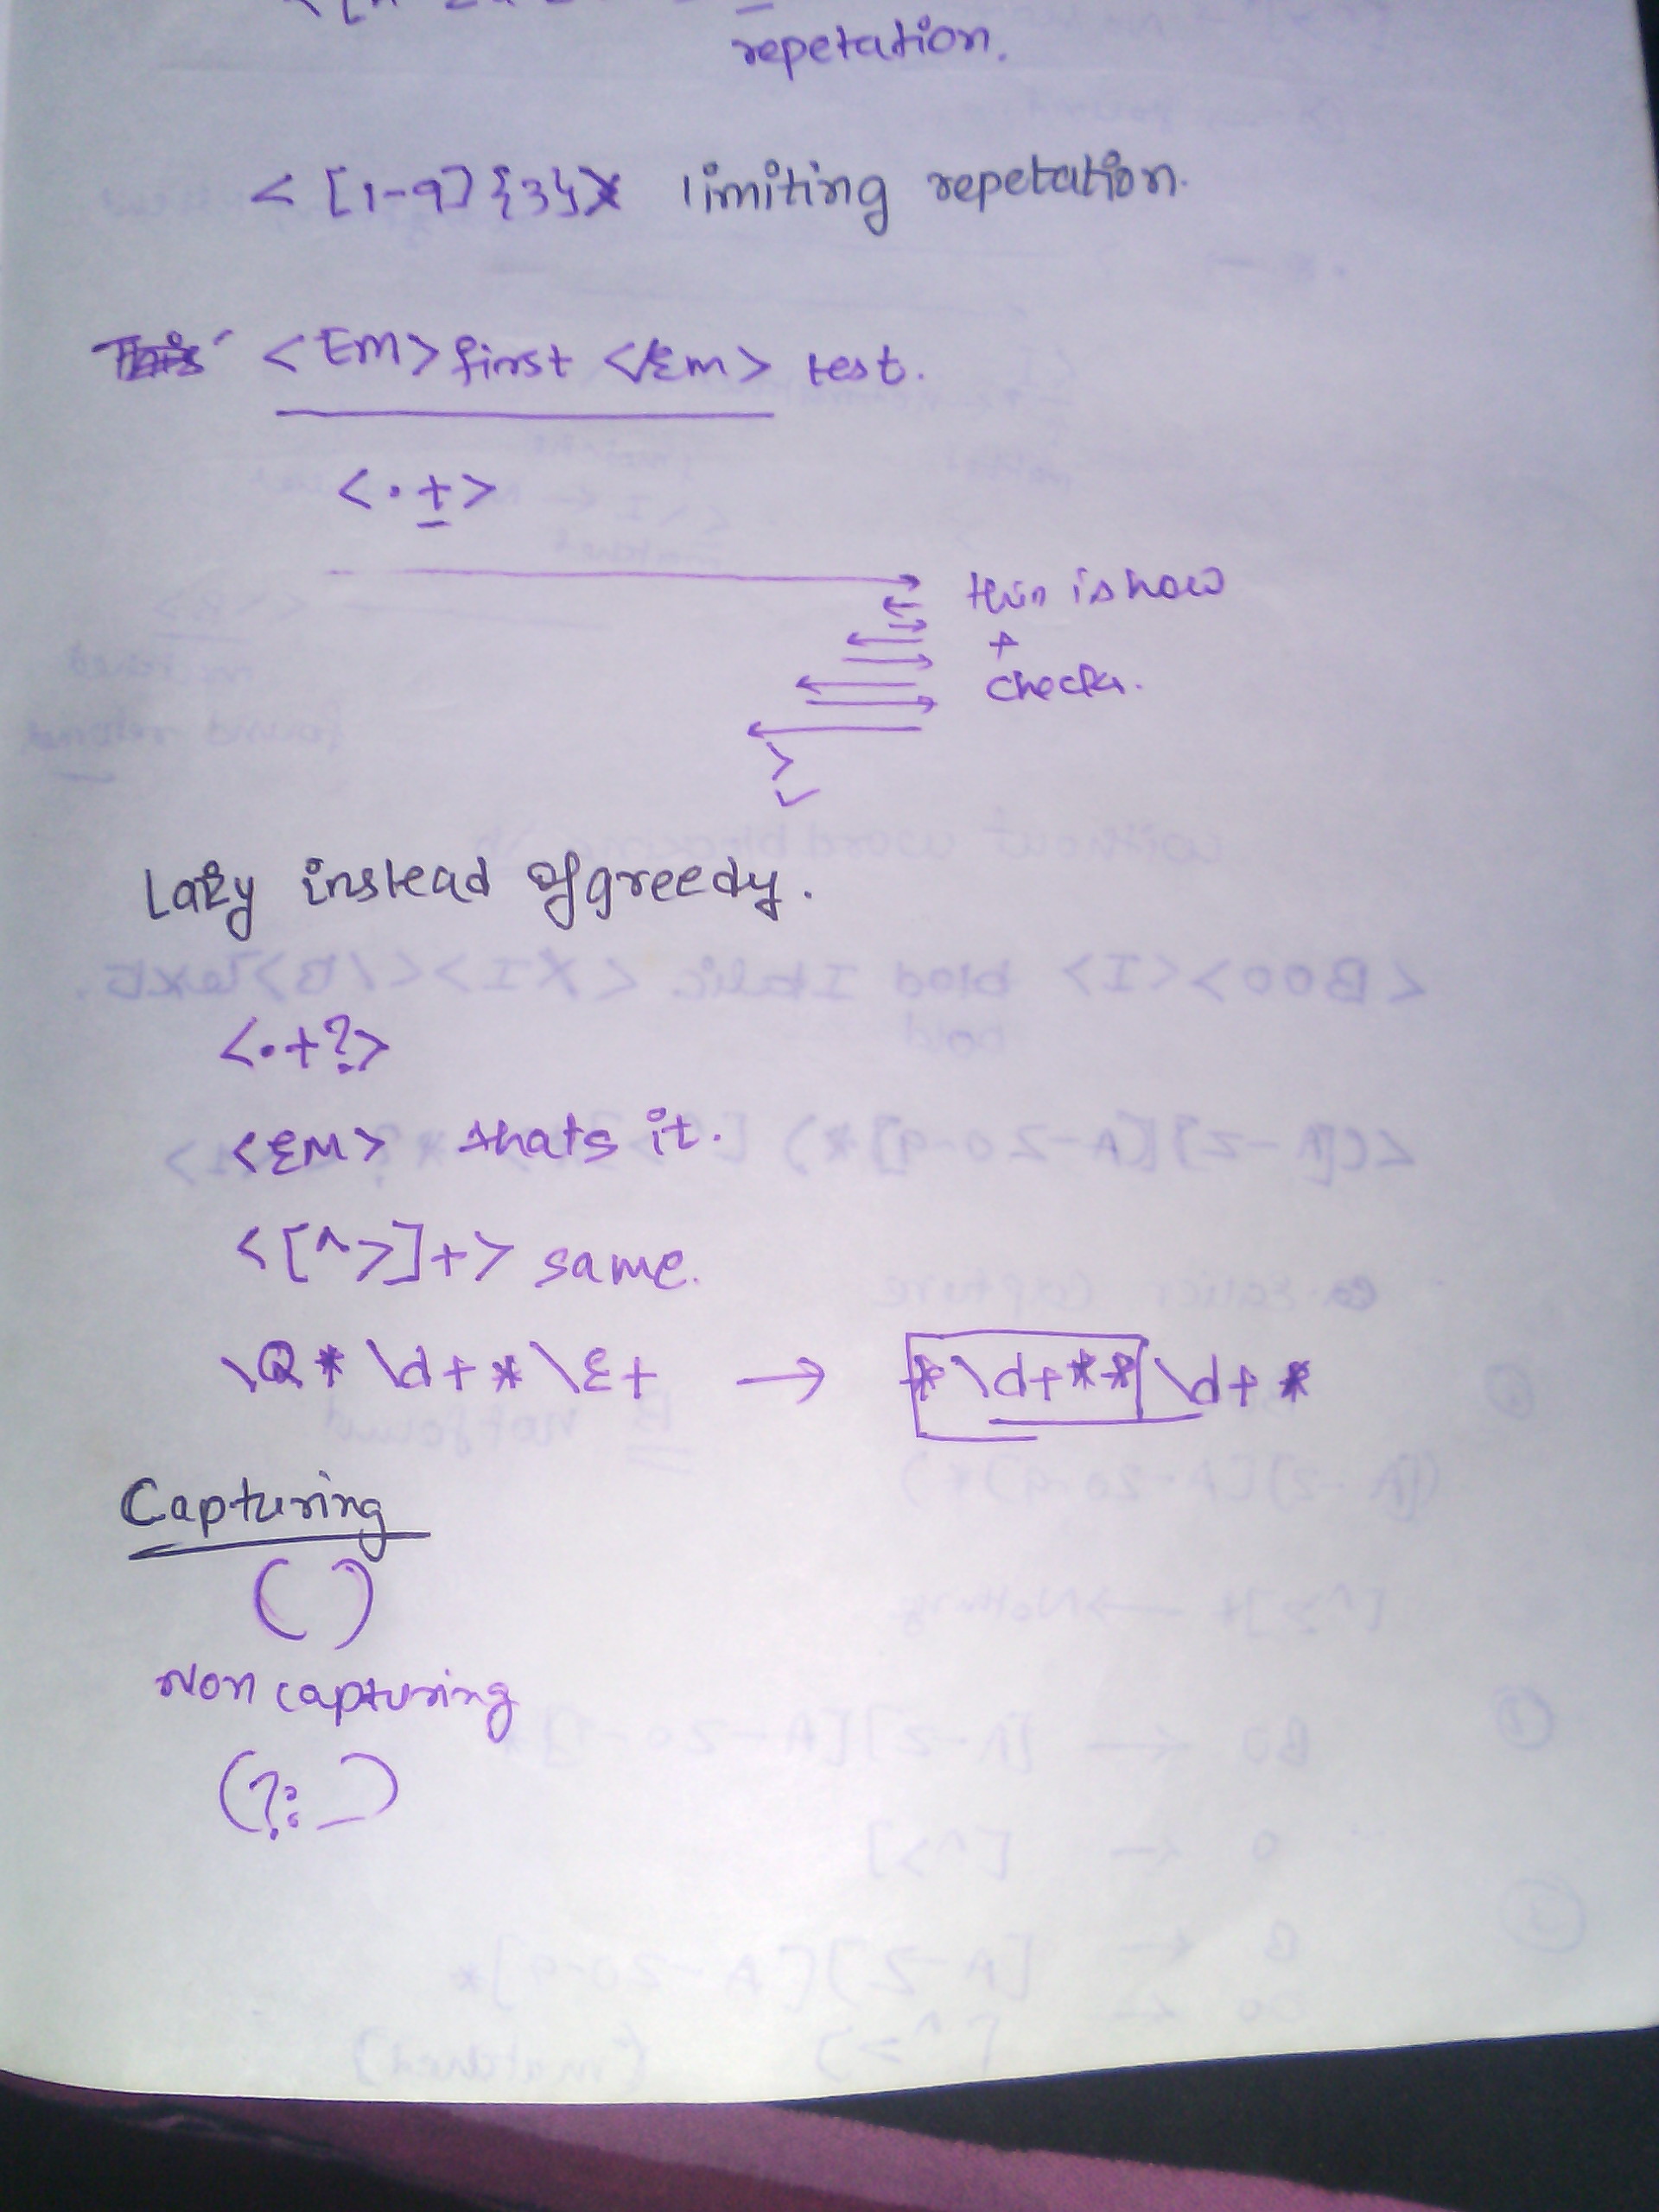 repetation.
< [1-9]{3}> limiting repetation.
<Em>first </Em> test.
<.+>
this is how
+
checks.
>
Lazy instead of greedy.
<.+?>
<EM> thats it.
<[^>]+> same.
\Q*\d+*\E+ → *\d+**\d+*
Capturing
( )
Non capturing
(?: _)